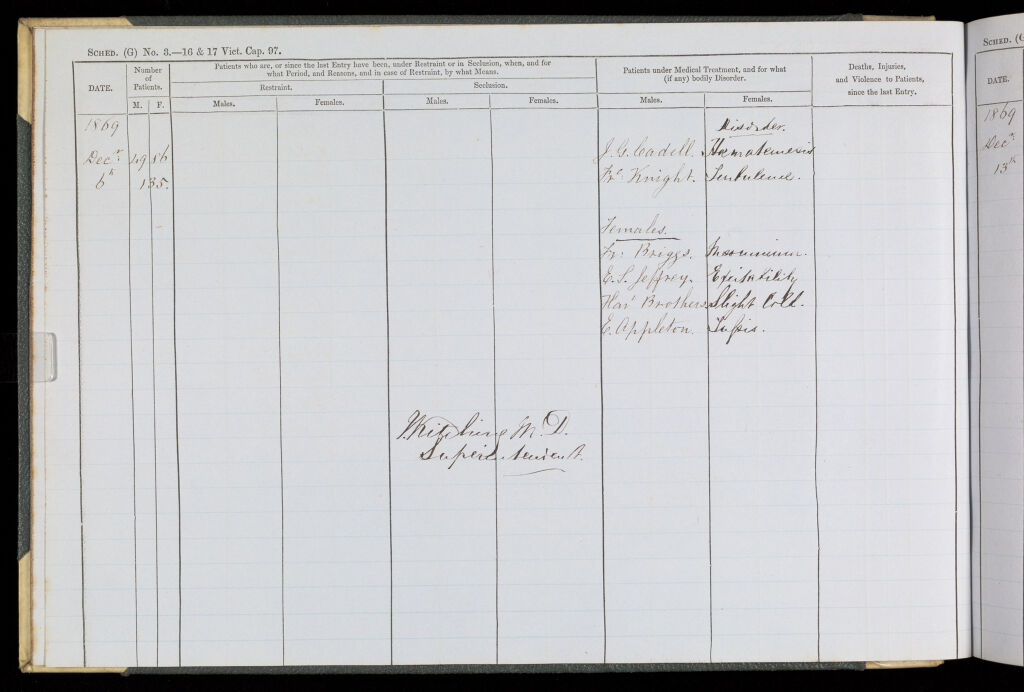 SCHED. (G) No. 3.—16 & 17 Vict. Cap. 97.
DATE.
Number of Patients.
M. F.
Patients who are, or since the last Entry have been, under Restraint or in Seclusion, when, and for
what Period, and Reasons, and in case of Restraint, by what Means.
Restraint.
Seclusion.
Males. Females. Males. Females.
Patients under Medical Treatment, and for what
(if any) bodily Disorder.
Males. Females.
Deaths, Injuries,
and Violence to Patients,
since the last Entry.
1869 Disorder.
Decr. 49 56 J. G. Cadell. Hæmatemesis
6th 135. Frs. Knight. Turbulence.
Females.
Fr. Briggs.
E. S. Jeffrey. Excitability
Har. Brothers Slight Cold.
E. Appleton. Tussis.
J. Kitching M. D.
Superintendent.
SCHED. (G
DATE.
1869
Decr.
13th